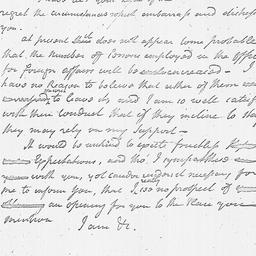 regret the circumstances which embarrass and distress
you.
at present this does not appear some probable
that the number of Persons employed in the Office
for foreign affairs will be encreased - I
have no Reason to believe that either of them
to leave it, and I am so well satisf
with their conduct that if they incline to sta
they may rely on my Support -
It would be unkind to excite fruitless
Expectations, and tho' I sympathize
with you, yet candor renders it necessary for
me to inform you, that I see no prospect of
an opening for you to the Place you
mention
I am &c.